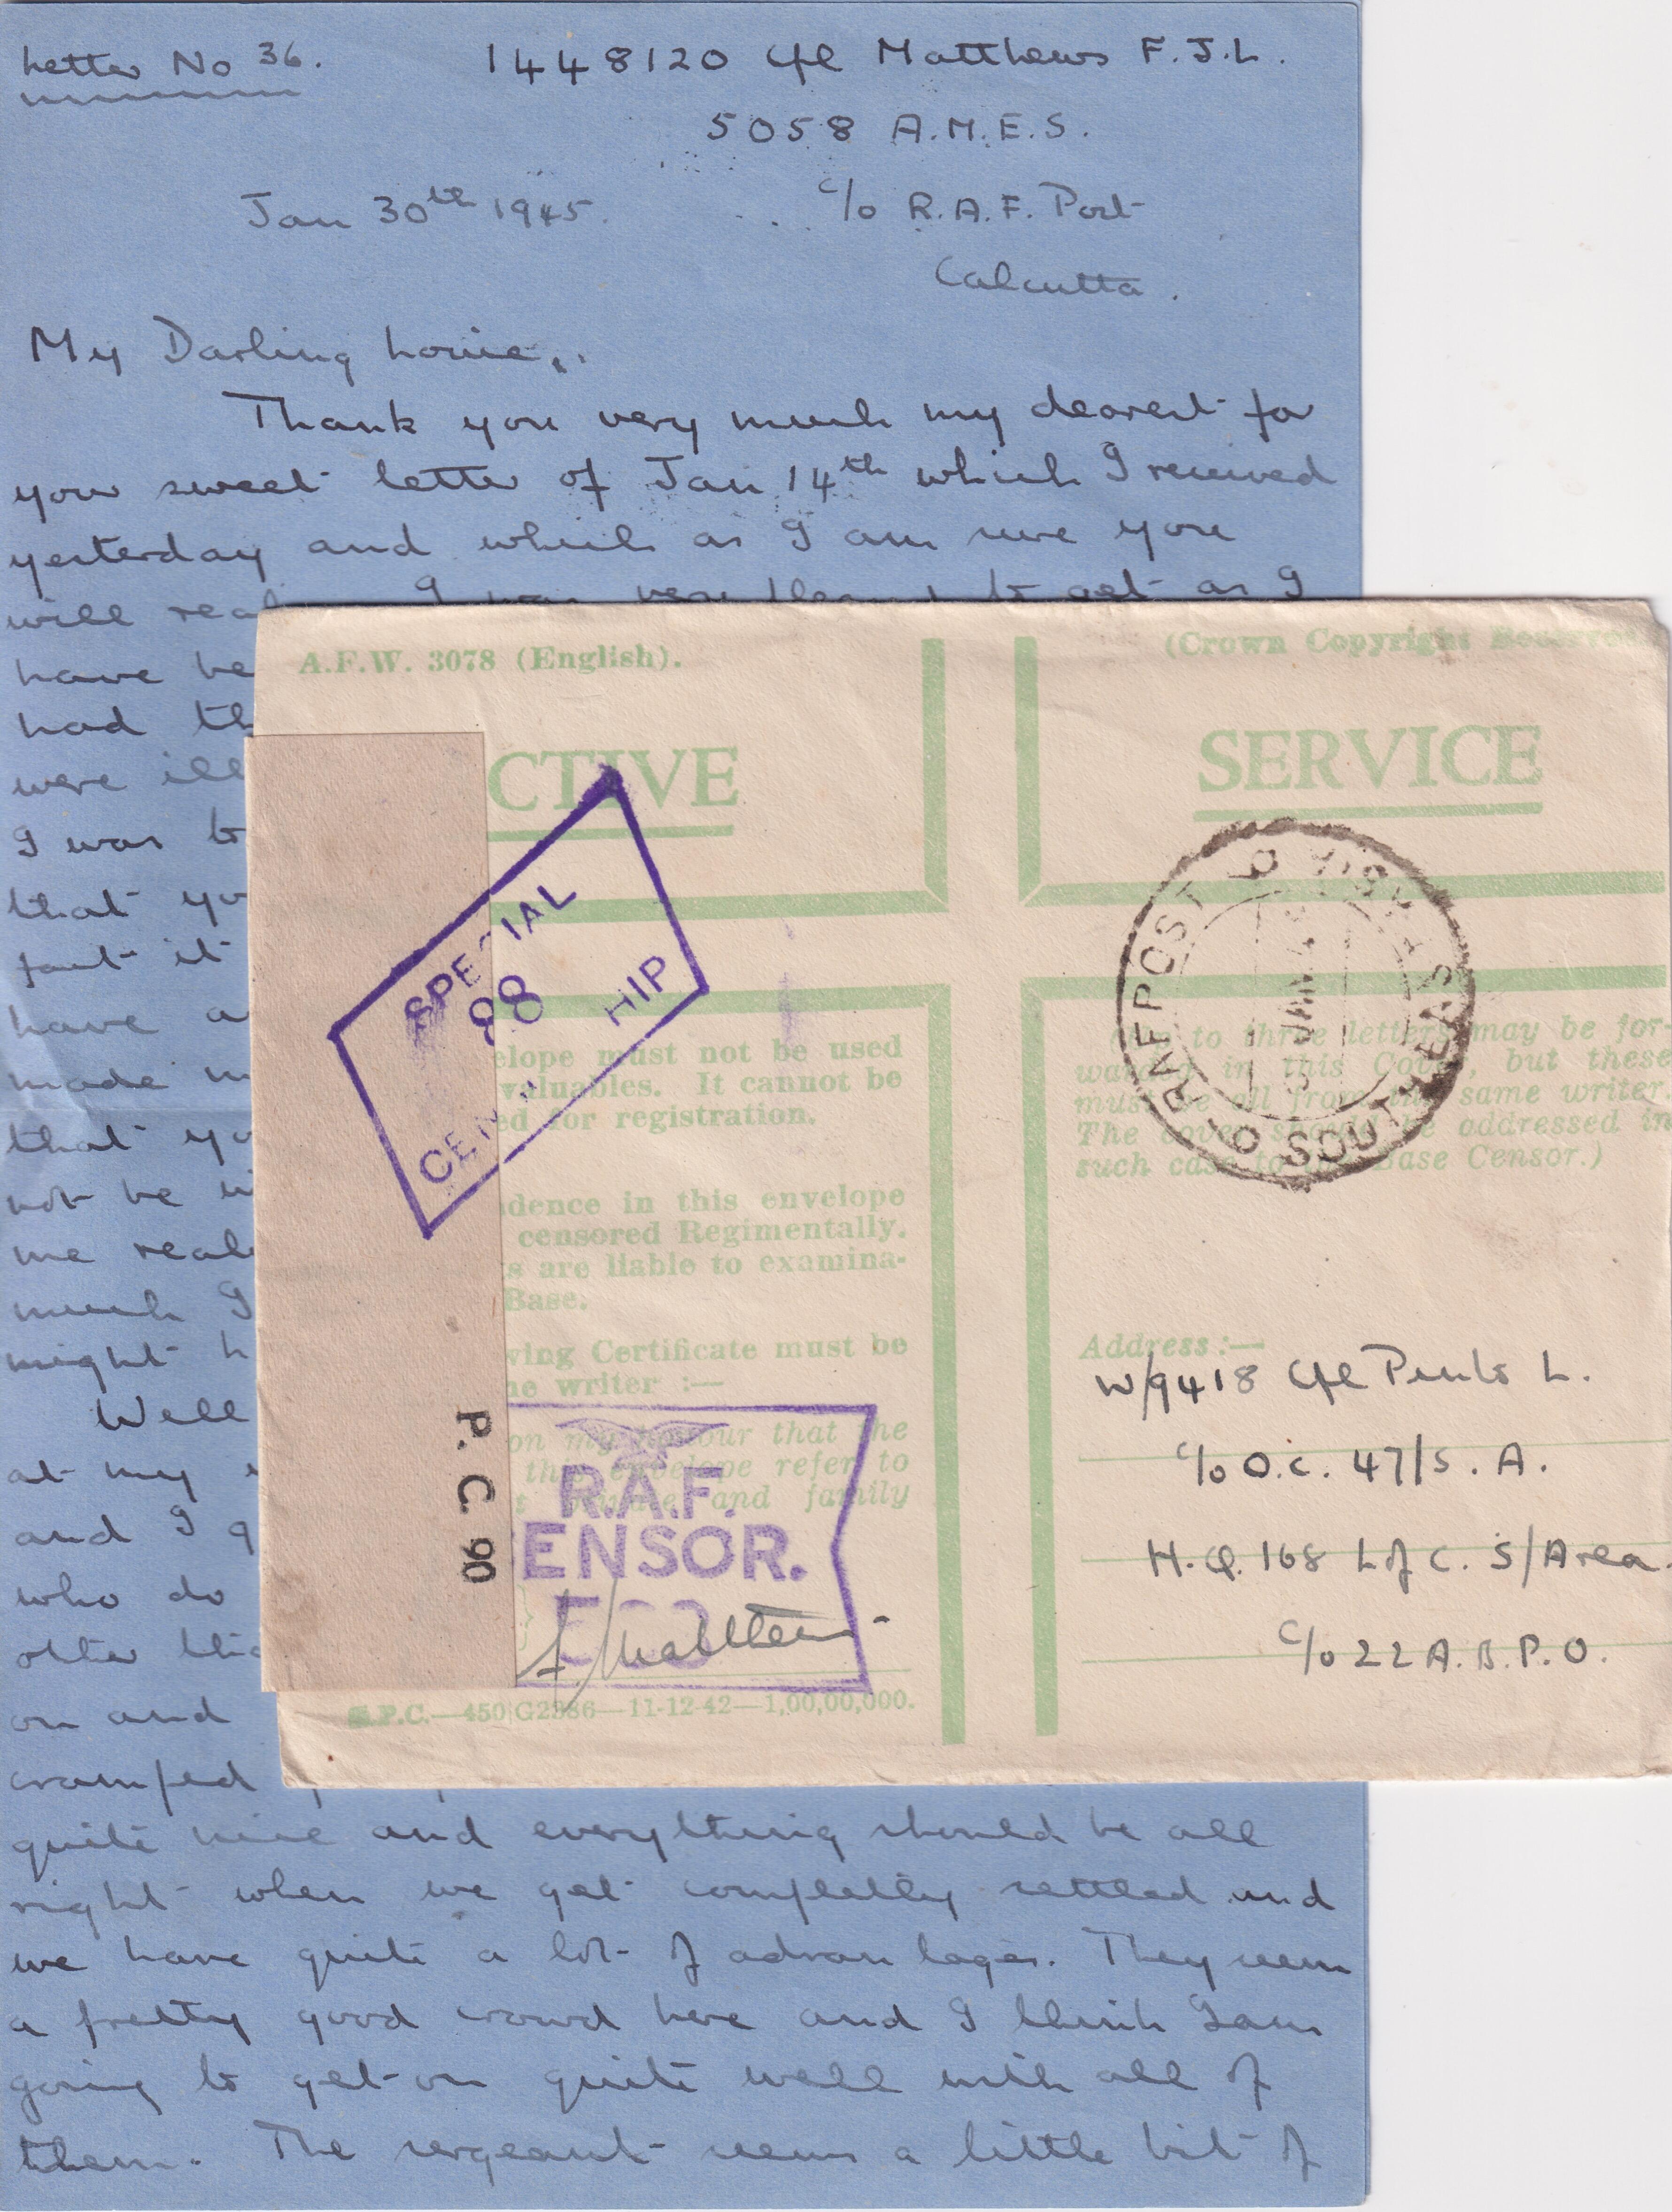 Letter No 36.
1448120 Cpl Matthews F.J.L.
5058 A.M.E.S.
Jan 30th 1945.
c/o R.A.F. Post
Calcutta.
My Darling Louie,
Thank you very much my dearest for
your sweet letter of Jan 14th which I received
yesterday and which as I am sure you
will I was very to get as I
have be
had th
were ill
I was to
that yo
fact it
have a
made m
that yo
not be w
me real
much I
might h
Well
at my
and I g
who do
other thi
on and
cramped
quite nice and everything should be all
right when we get completly settled and
we have quite a lot of advantages. They seem
a pretty good crowd here and I think I am
going to get on quite well with all of
them. The sergeant seems a little bit of
A.F.W. 3078 (English).
(Crown Copyright Reserved
CTIVE
SERVICE
SPECIAL
88
CEN HIP
RAFPOST
SOUTH EAST ASIA
JAN
elope must not be used
valuables. It cannot be
ed for registration.
dence in this envelope
censored Regimentally.
s are liable to examina-
Base.
ving Certificate must be
he writer :—
on my honour that the
this envelope refer to
t private and family
P. C. 90
R.A.F.
ENSOR.
Matthews
S.P.C.—450 G2386—11-12-42—1,00,00,000.
(Up to three letters may be for-
warded in this Cover, but these
must be all from the same writer.
The cover should be addressed in
such case to the Base Censor.)
Address :—
W/9418 Cpl Pinto L.
c/o O.C. 47/S.A.
H.Q. 168 L of C. S/Area.
c/o 22 A.B.P.O.